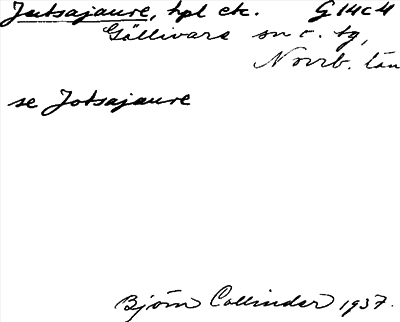 Jutsajaure, hpl etc. G 14 c 4
Gällivare sn o. tg,
Norrb. län
se Jotsajaure
Björn Collinder 1937.